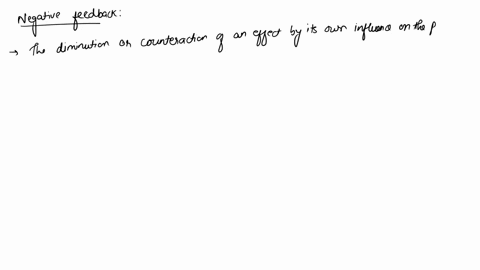 Negative feedback:
→ The diminution or counteraction of an effect by its own influence on the p